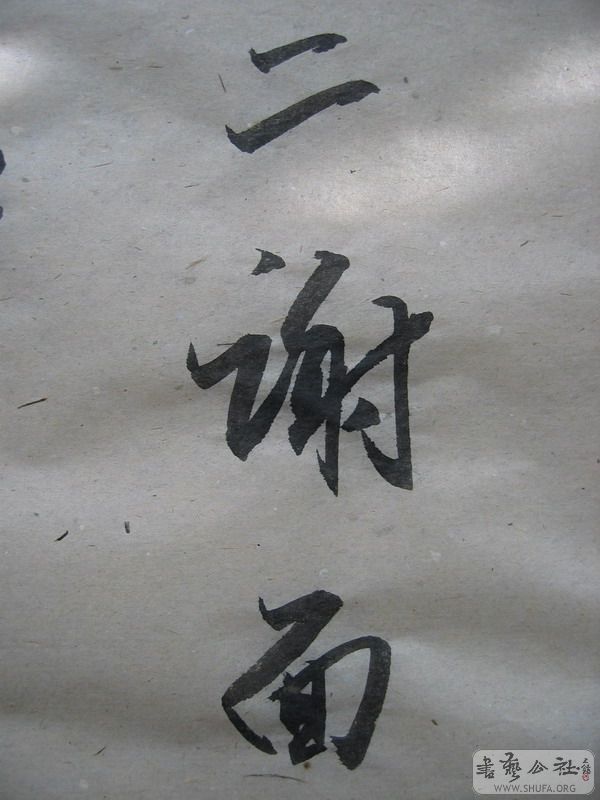 二謝面
書藝公社
WWW.SHUFA.ORG